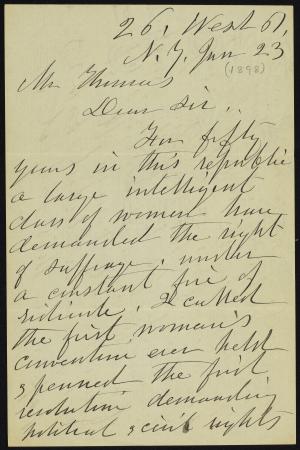 26, West 61,
N.Y. Jan 23
(1898)
Mr Thomas
Dear Sir,.
For fifty
years in this republic
a large intelligent
class of women have
demanded the right
of suffrage, under
a constant fire of
ridicule. I called
the first woman's
convention ever held
& penned the first
resolution demanding
political & civil rights